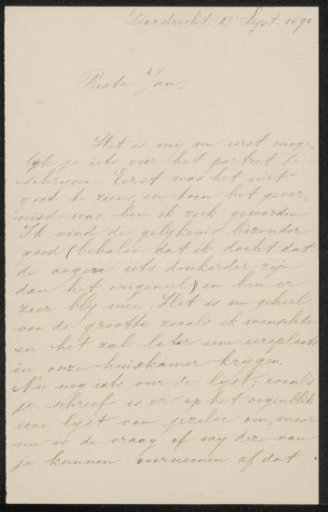 Dordrecht, 13 Sept 1890
Beste Jan,
Het is mij nu eerst moge-
lijk je iets over het portret te
schrijven. Eerst was het niet
goed te zien, en toen het gever-
nisd was ben ik ziek geworden
Ik vind de gelijkenis bizonder
goed (behalve dat ik dacht dat
de oogen iets donkerder zijn
dan het origineel) en ben er
zeer blij mee. Het is nu geheel
van de grootte zooals ik wenschte
en het zal later eene eereplaats
in onze huiskamer krijgen.
Nu nog iets over de lijst; zooals
je schreef is er op het oogenblik
eene lijst van jezelve om, maar
nu is de vraag of wij deze van
je kunnen overnemen of dat